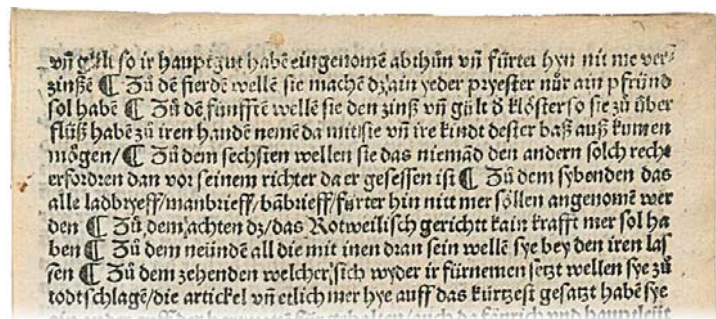 vn̄ gült so ir hauptgut habē eingenomē abthůn vn̄ fürter hyn nit me ver-
zinßē ¶ Zů dē fierdē wellē sie machē dz ain yeder pryester nůr ain pfründ
sol habē ¶ Zů dē fünfftē wellē sie den zinß vn̄ gült d̄ klöster so sie zů über
flüß habē zů iren handē nemē da mit sie vn̄ ire kindt dester baß auß kumen
mögen/ ¶ Zů dem sechsten wellen sie das niemād den andern solch recht
erfordren dan vor seinem richter da er gesessen ist ¶ Zů dem sybenden das
alle ladbryeff/manbrieff/bābrieff/fürter hin nitt mer söllen angenomē wer
den ¶ Zů dem achten dz/das Rotweilisch gerichtt kain krafft mer sol ha
ben ¶ Zů dem neündē all die mit inen dran sein wellē sye bey den iren las
sen ¶ Zů dem zehenden welcher sich wyder ir fürnemen setzt wellen sye zů
todtschlagē/die artickel vn̄ etlich mer hye auff das kürtzest gesatzt habē sye